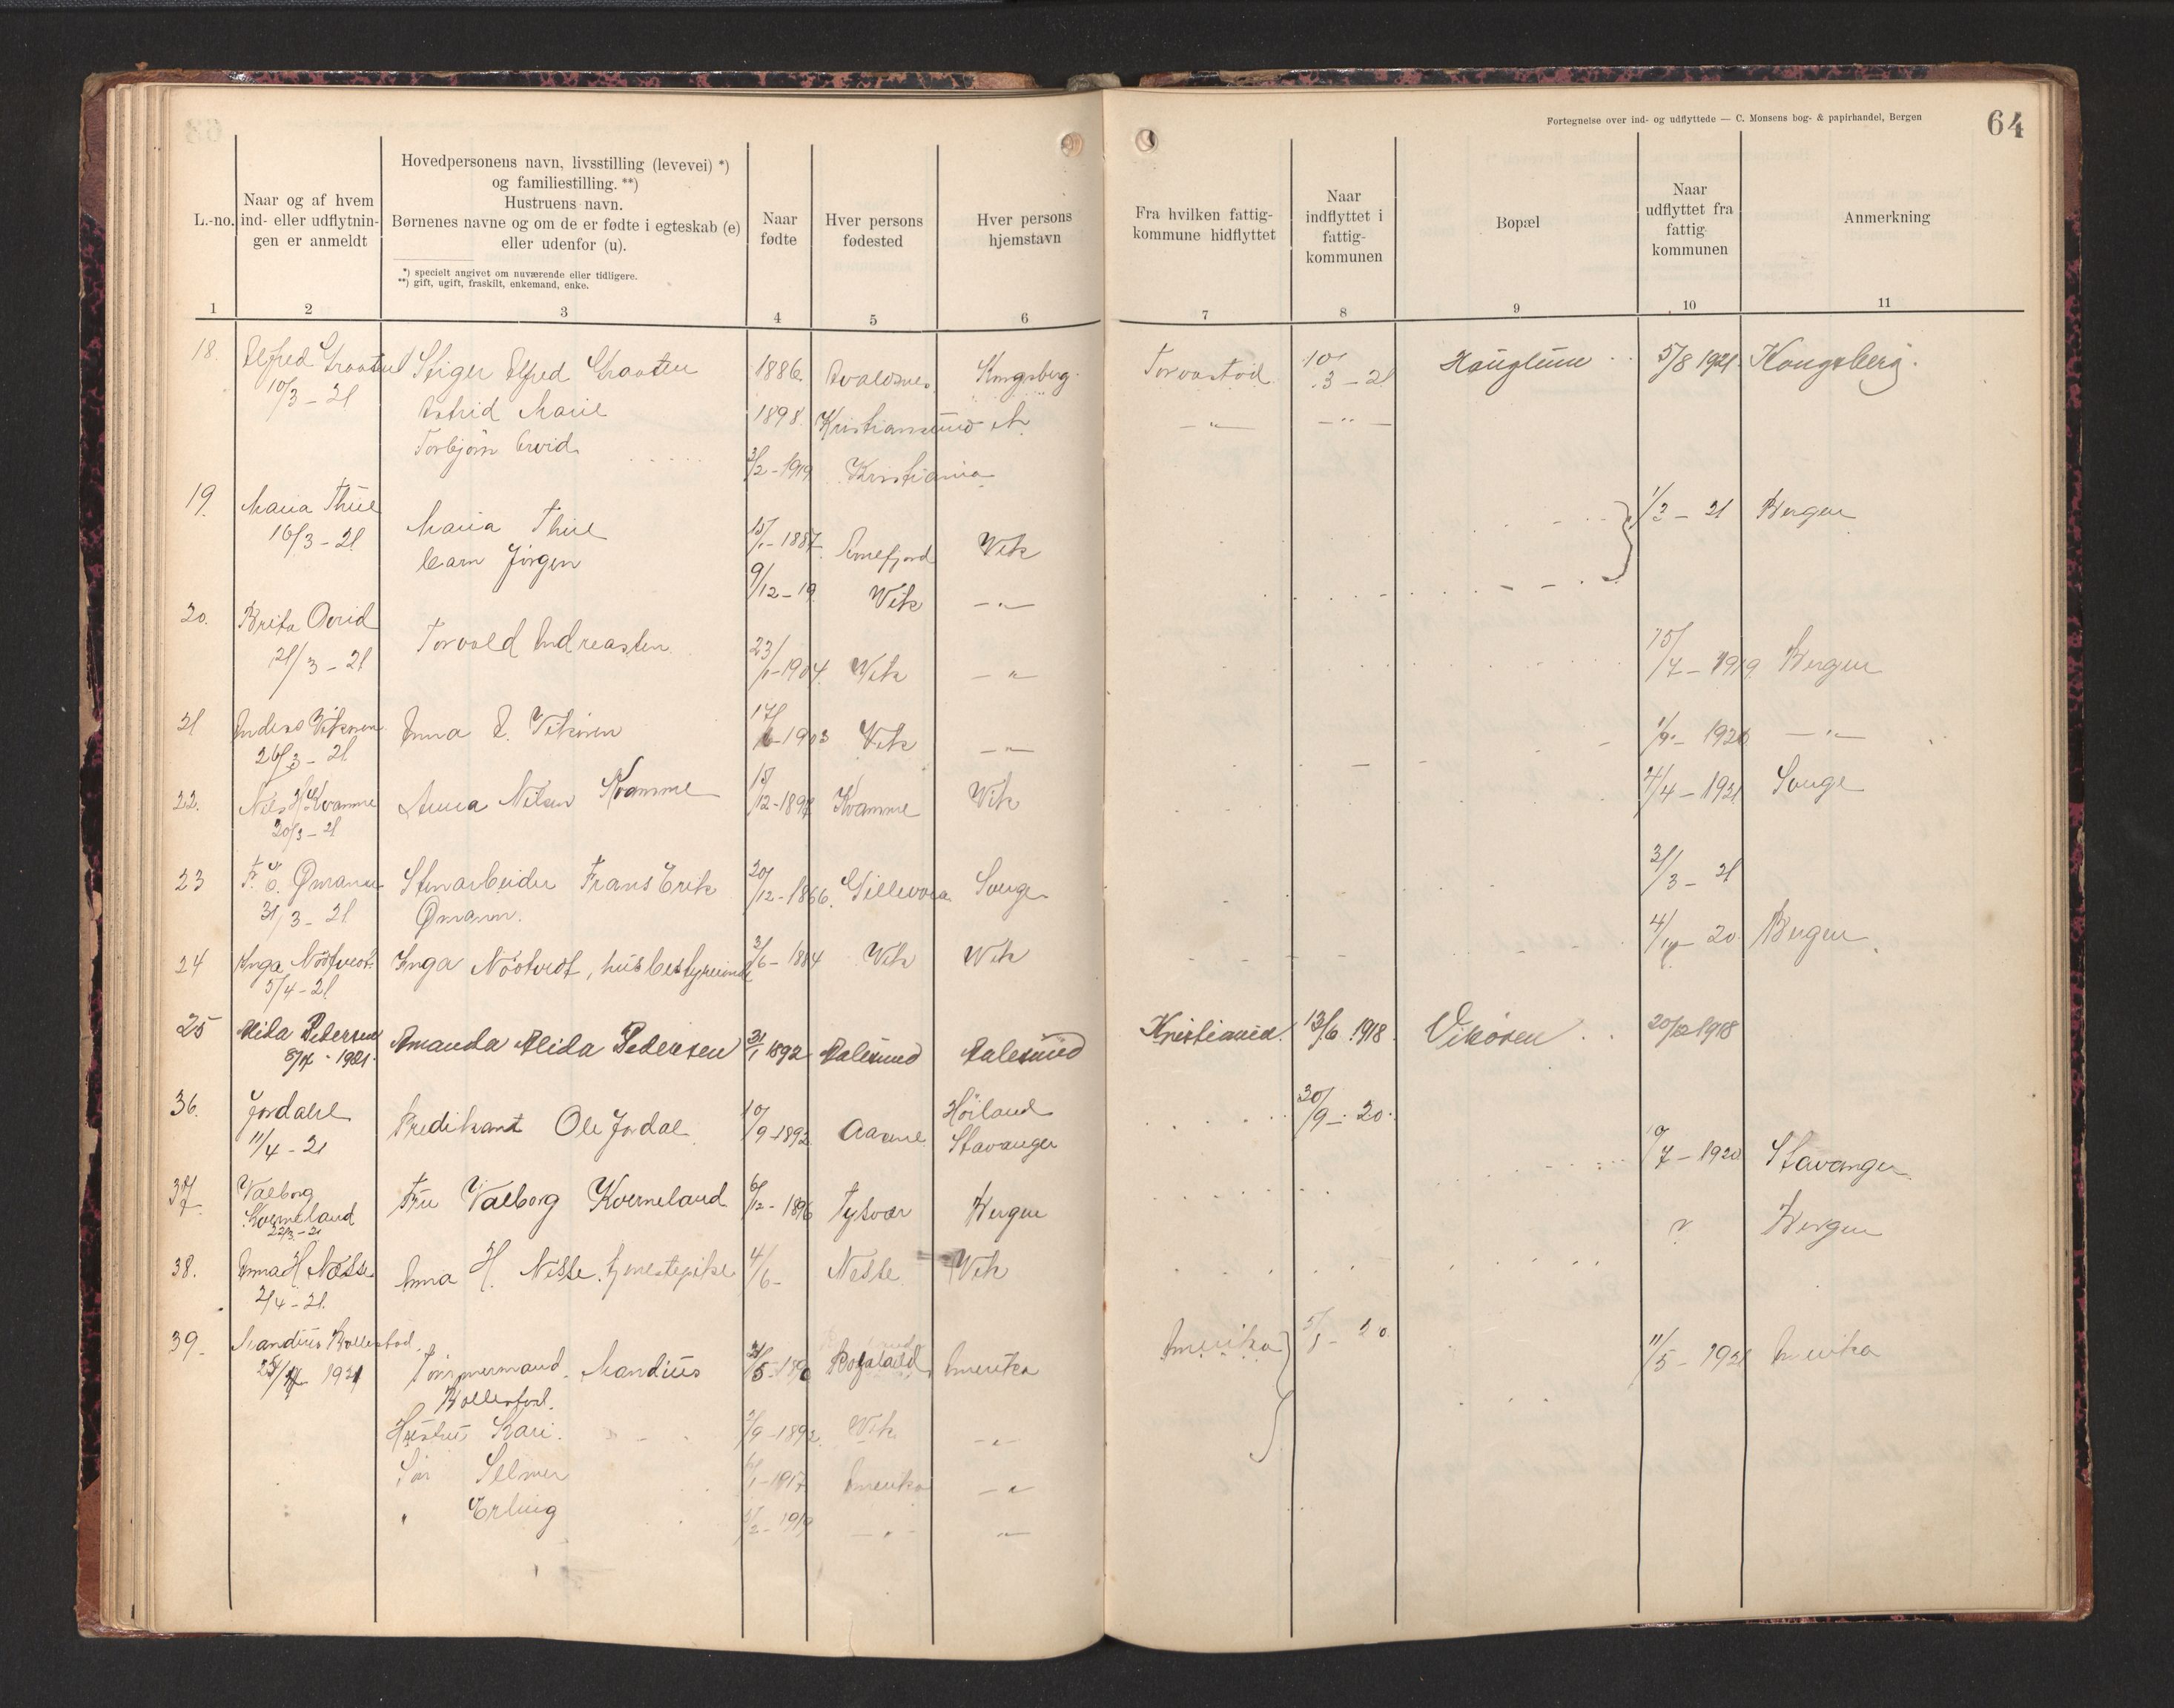 Fortegnelse over ind- og udflyttede — C. Monsens bog- & papirhandel, Bergen
64
L.-no.
Naar og af hvem
ind- eller udflytnin-
gen er anmeldt
Hovedpersonens navn, livsstilling (levevei) *)
og familiestilling. **)
Hustruens navn.
Børnenes navne og om de er fødte i egteskab (e)
eller udenfor (u).
*) specielt angivet om nuværende eller tidligere.
**) gift, ugift, fraskilt, enkemand, enke.
Naar
fødte
Hver persons
fødested
Hver persons
hjemstavn
Fra hvilken fattig-
kommune hidflyttet
Naar
indflyttet i
fattig-
kommunen
Bopæl
Naar
udflyttet fra
fattig-
kommunen
Anmerkning
1 2 3 4 5 6 7 8 9 10 11
18. Alfred 1886 Avaldsnes Kongsberg Torvastad 10/3-21 Hauglum 5/8 1921 Kongsberg.
10/3-21
Astrid Marie 1898 Kristiansund N. -"- -"-
Torbjørn Arvid 2-1919 Kristiania
19. Maria Maria 1887 Arnefjord Vik 21 Bergen
16/3-21
Jørgen 9/12-19 Vik -"-
20. Brita Torvald Andreassen 23/1-1904 Vik -"- 15/7-1919 Bergen
21/3-21
21 Anders Vikøren Anna A. Vikøren 1903 Vik -"- -"-
26/3-21
22. Nils H. Kvamme Anna Nilsen Kvamme 12-1897 Kvamme Vik 4-1921 Souge
20/3-21
23 F. E. Ømann Stenarbeider Frans Erik 20/12-1866. Gillevara Souge 3-21
31/3-21 Ømann.
24 Inga Nøstvedt Inga Nøstvedt, husbestyrerinde 6-1884 Vik Vik 20 Bergen
5/4-21
25 Alida Pedersen Amanda Alida Pedersen 31/1 1892 Aalesund Aalesund Kristiania 13/6 1918 Vikøren 20/12 1918
1921
36. Jordal Predikant Ole Jordal 10/9-1892 Høiland 30/9-20
11/4-21 Stavanger 7-1920 Stavanger
37 Valborg Fru Valborg Kverneland 6/12-1896 Tysvær Bergen ? Bergen
Kverneland
22/3-21
38. Anna H. Nesse Anna H. Nesse tjenestepike 4/6- Nesse Vik
2/4-21
39. Mandius Bollestad Tømmermand Mandius 5-1890 Rogaland Amerika Amerika 20 11/5-1921 Amerika
1921 Bollestad.
Hustru Kari. 9-1892 Vik -"-
Søn Selmer 1-1917 Amerika -"-
" Erling 2-1919 -"- -"-